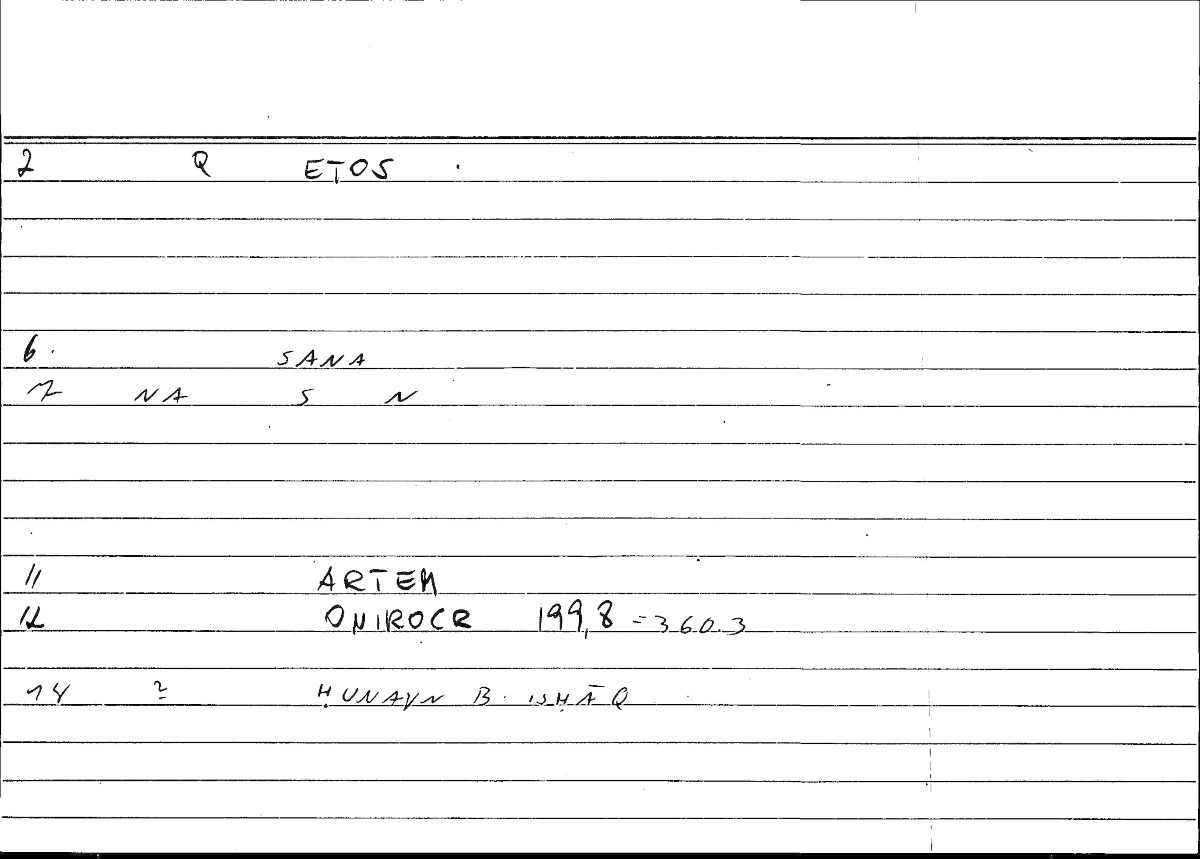 2 Q EṬOS
6. SANA
7 NA S N
11 ARTEM
12 ONIROCR 199,8 = 360.3
14 ʾ̲ ḤUNAYN B. ISḤĀQ